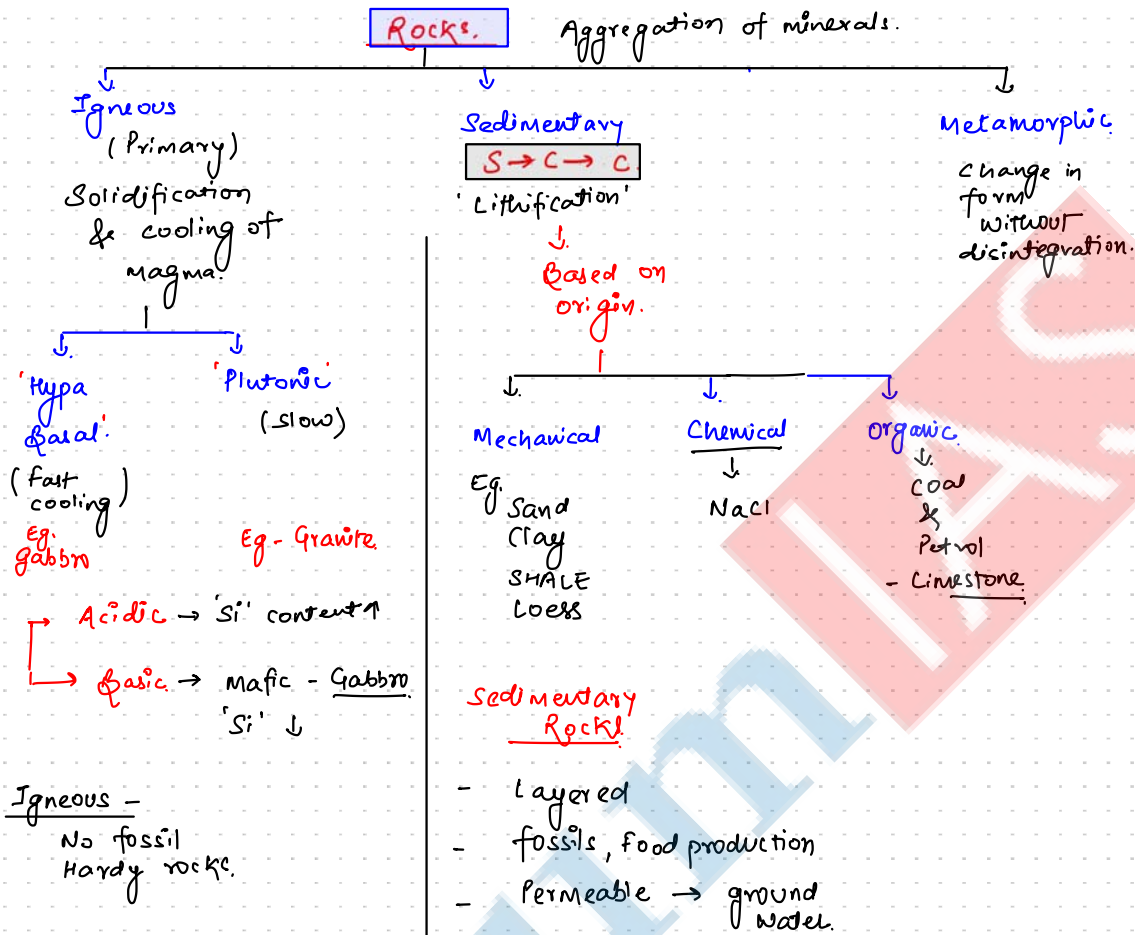 Rocks.
Aggregation of minerals.
Igneous
(Primary)
Solidification
& cooling of
magma.
'Hypa
Basal'
(fast
cooling)
Eg.
gabbro
'Plutonic'
(slow)
Eg - Granite.
Acidic → 'Si' content ↑
Basic → mafic - Gabbro
'Si' ↓
Igneous -
No fossil
Hardy rocks.
Sedimentary
S → C → C.
'Lithification'
Based on
origin.
Mechanical
Eg.
Sand
Clay
SHALE
Loess
Chemical
NaCl
Organic
Coal
&
Petrol
- Limestone
Sedimentary
Rocks
- Layered
- fossils, food production
- Permeable → ground
water.
Metamorphic
change in
form
without
disintegration.
IAS